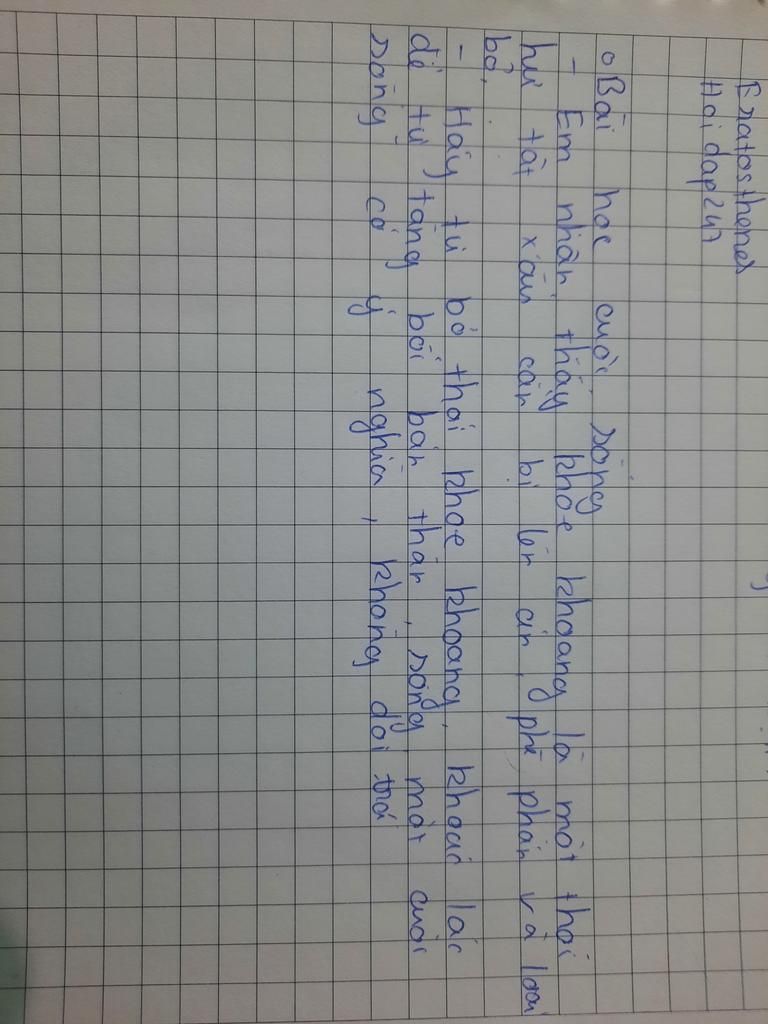 Eratosthenes
Hoidap247
o Bài học cuộc sống
- Em nhận thấy khoe khoang là một thói
hư tật xấu cần bị lên án, phê phán và loại
bỏ.
- Hãy từ bỏ thói khoe khoang, khoác lác
để tự tặng bởi bản thân, sống một cuộc
sống có ý nghĩa, không dối trá